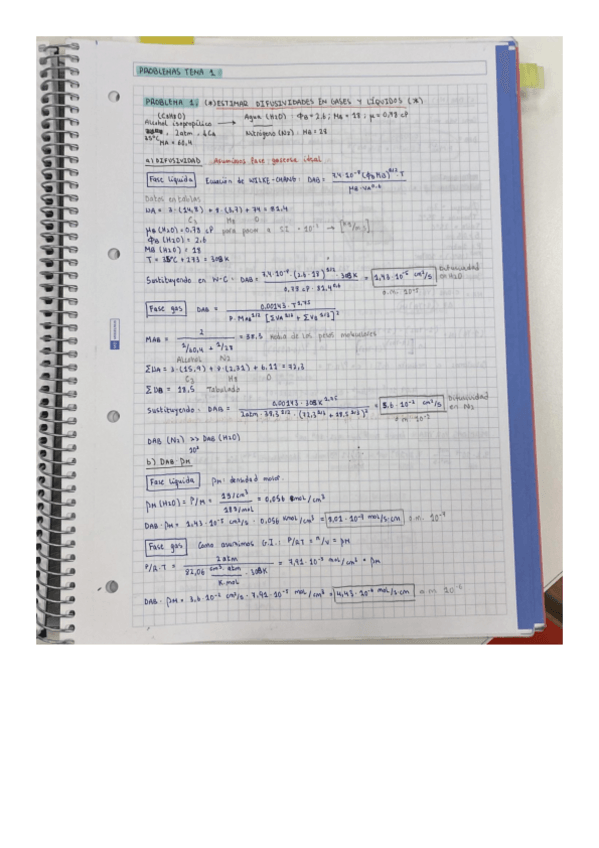 PROBLEMAS TEMA 1
PROBLEMA 1. (*) ESTIMAR DIFUSIVIDADES EN GASES Y LÍQUIDOS (*)
(C3H8O)
Alcohol isopropílico → Agua (H2O): ΦB = 2,6; MB = 18; μ = 0,78 cP
35ºC, 2atm, 
MA = 60,4
Nitrógeno (N2): MB = 28
a) DIFUSIVIDAD Asumimos fase gaseosa ideal
Fase líquida Ecuación de WILKE-CHANG: DAB = 7,4·10⁻⁸(ΦB MB)^1/2 · T / μB·VA^0,6
Datos en tablas
VA = 3·(14,8) + 8·(3,7) + 7,4 = 81,4
C3 H8 O
μB (H2O) = 0,78 cP para pasar a SI = 10⁻³ → [kg/m.s]
ΦB (H2O) = 2,6
MB (H2O) = 18
T = 35ºC + 273 = 308 K
Sustituyendo en W-C: DAB = 7,4·10⁻⁸·(2,6·18)^1/2 · 308K / 0,78 cP · 81,4^0,6 = 1,43·10⁻⁵ cm²/s Difusividad en H2O
o.m. 10⁻⁵
Fase gas DAB = 0,00143·T^1,75 / P·MAB^1/2 [ΣVA^1/3 + ΣVB^1/3]²
MAB = 2 / 1/60,4 + 1/28 = 38,3 media de los pesos moleculares
Alcohol N2
ΣDA = 3·(15,9) + 8·(2,31) + 6,11 = 72,3
C3 H8 O
ΣDB = 18,5 Tabulado
Sustituyendo: DAB = 0,00143·308K^1,75 / 2atm·38,3^1/2·(72,3^1/3 + 18,5^1/3)² = 3,6·10⁻² cm²/s Difusividad en N2
o.m. 10⁻²
DAB (N2) >> DAB (H2O)
10³
b) DAB·ρM
Fase líquida ρM: densidad molar.
ρM (H2O) = ρ/M = 1g/cm³ / 18g/mol = 0,056 mol/cm³
DAB·ρM = 1,43·10⁻⁵ cm²/s · 0,056 mol/cm³ = 8,01·10⁻⁷ mol/s·cm o.m. 10⁻⁷
Fase gas Como asumimos G.I.: P/RT = n/V = ρM
P/R·T = 2 atm / 82,06 cm³·atm/K·mol · 308K = 7,91·10⁻⁵ mol/cm³ = ρM
DAB·ρM = 3,6·10⁻² cm²/s · 7,91·10⁻⁵ mol/cm³ =